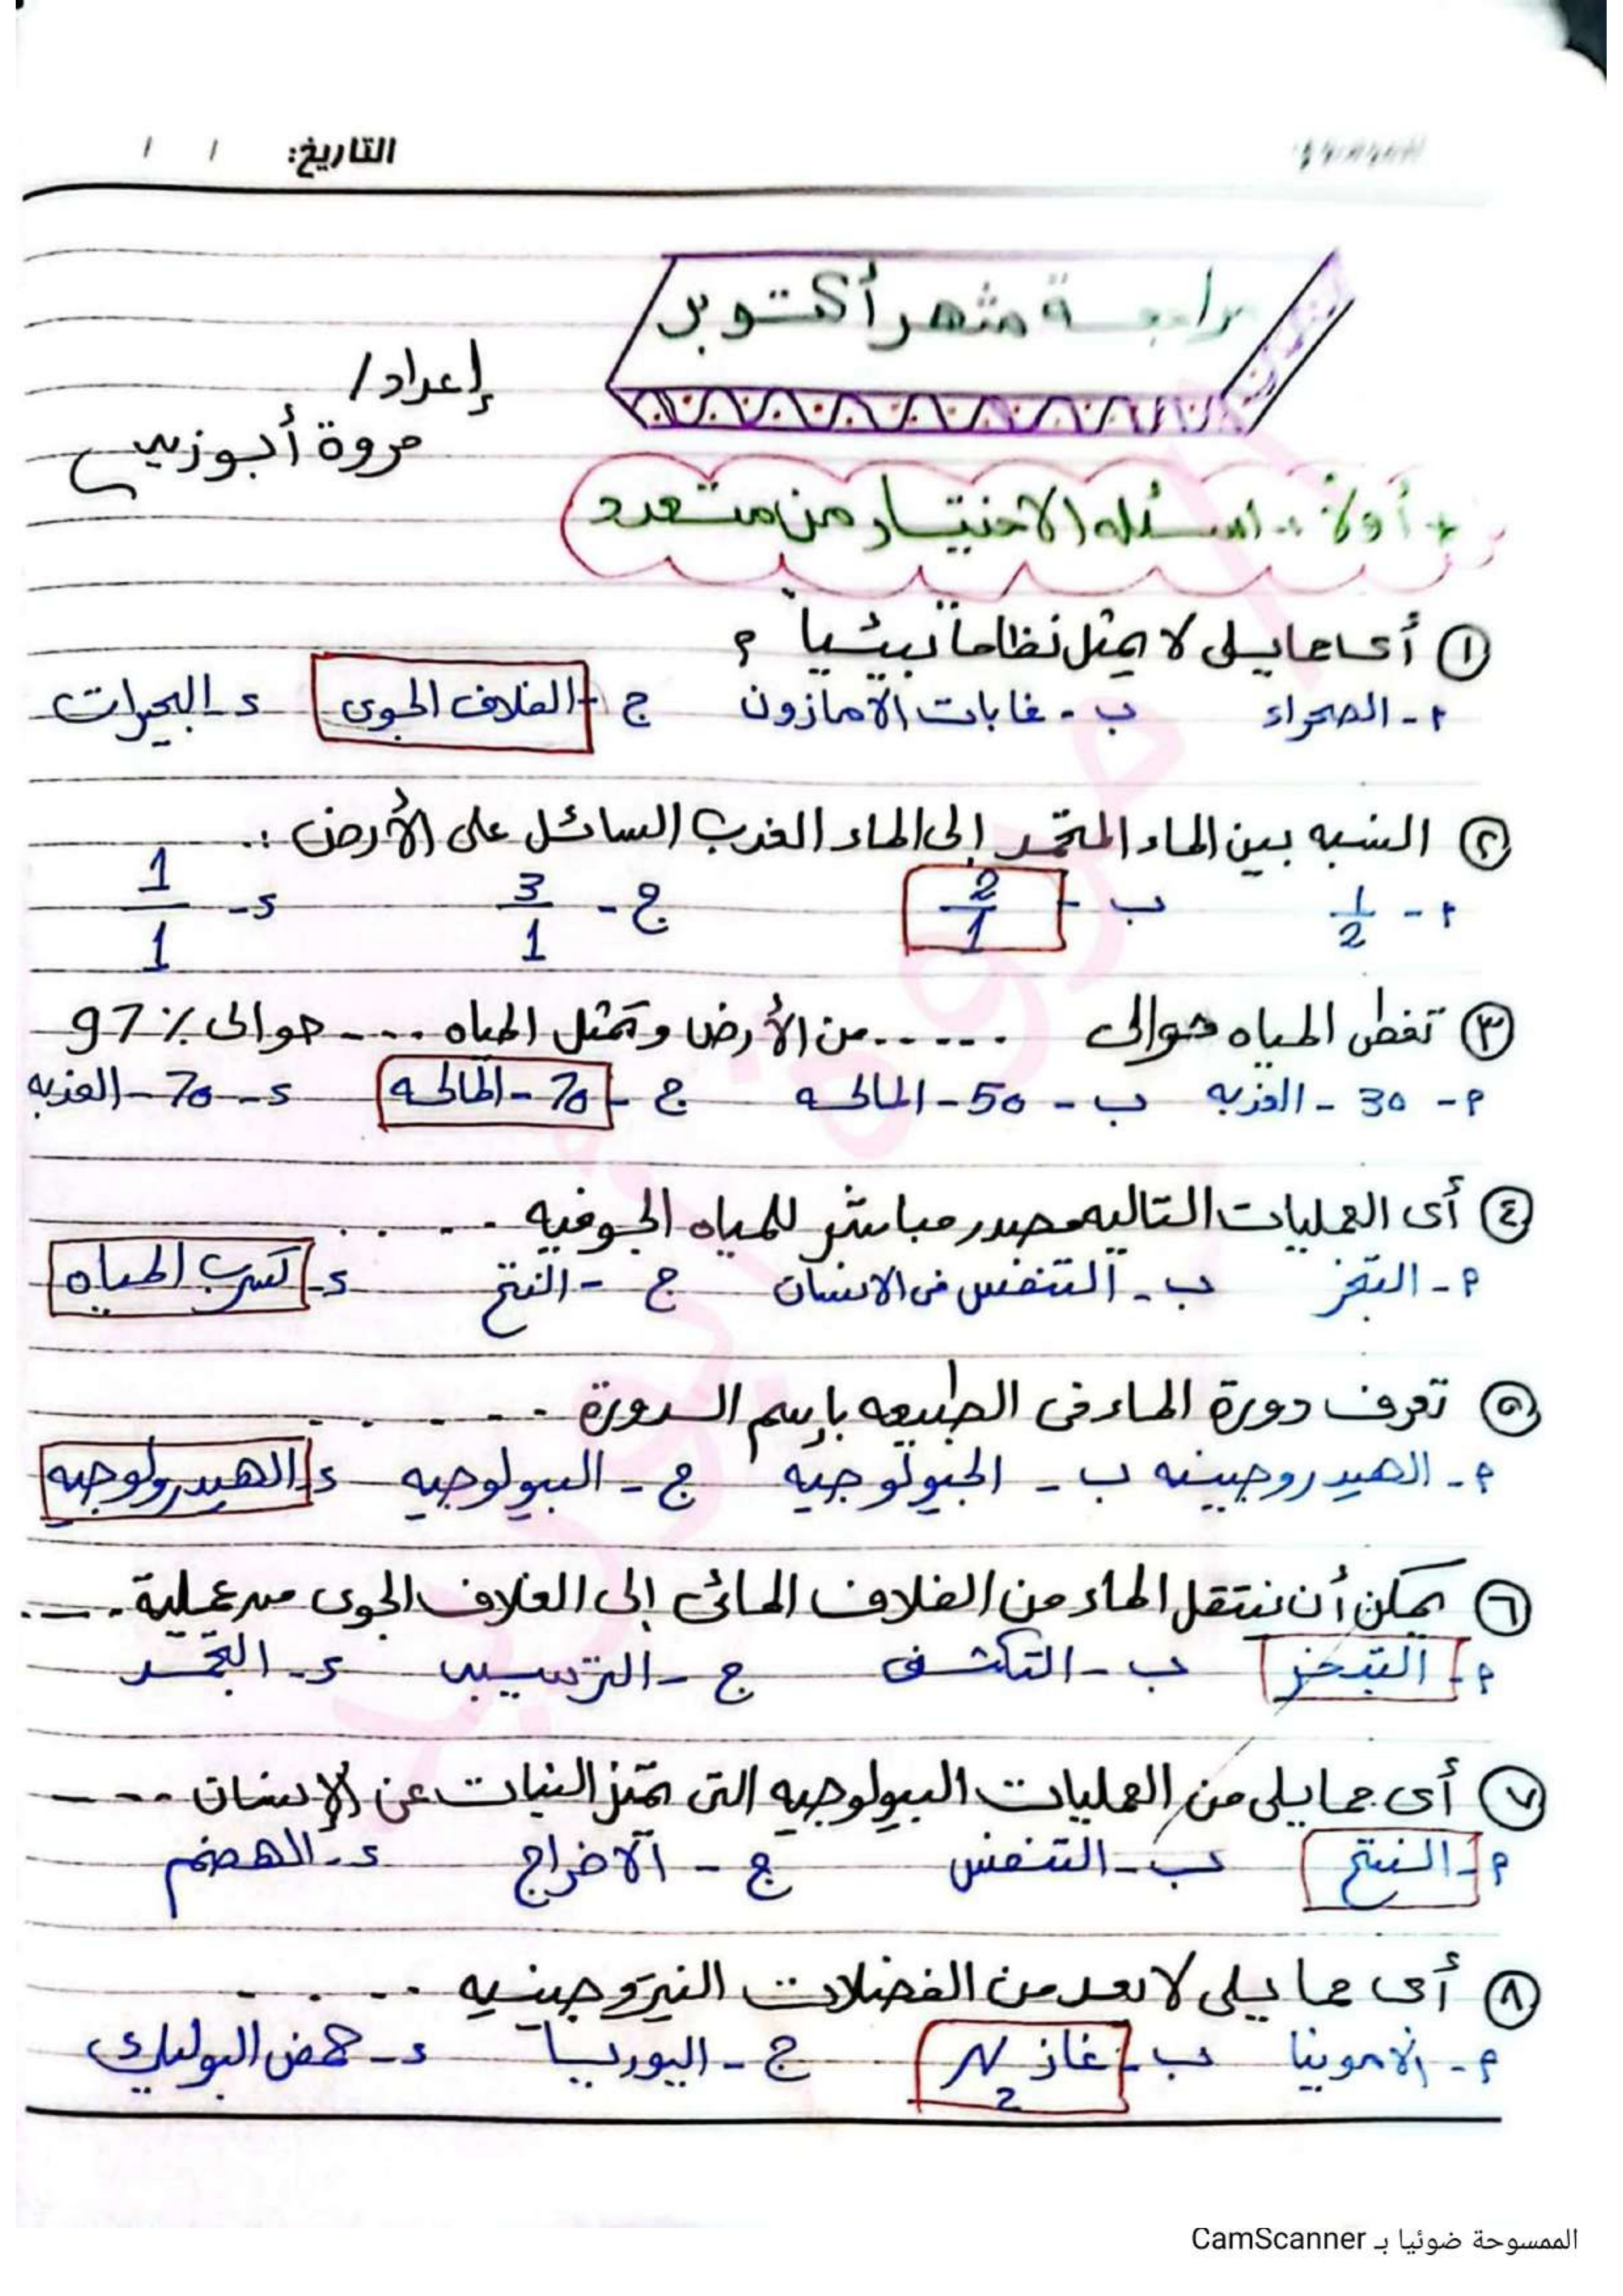 التاريخ: / /
مراجعة شهر أكتوبر
إعداد/
مروة أبوزيد
أولاً :- اسئله الاختيار من متعدد
١ أى مما يلى لا يمثل نظاماً بيئياً ؟
أ - الصحراء ب - غابات الأمازون ج - الغلاف الجوى د - البحيرات
٢ النسبه بين الماء المتجمد إلى الماء العذب السائل على الأرض :.
أ - 1/2 ب - 2/1 ج - 3/1 د - 1/1
٣ تغطى المياه حوالى ...... من الأرض وتمثل المياه .... حوالى % 97
أ - 30 - العذبه ب - 50 - المالحه ج - 70 - المالحه د - 70 - العذبه
٤ أى العمليات التاليه مصدر مباشر للمياه الجوفيه .....
أ - التبخر ب - التنفس فى الانسان ج - النتح د - تسرب المياه
٥ تعرف دورة الماء فى الطبيعه بإسم الدورة ......
أ - الهيدروجينيه ب - الجيولوجيه ج - البيولوجيه د - الهيدرولوجيه
٦ يمكن أن ننتقل الماء من الغلاف المائى إلى الغلاف الجوى عملية ....
أ - التبخر ب - التكثف ج - الترسيب د - التجمد
٧ أى مما يلى من العمليات البيولوجيه التى تميز النبات عن الإنسان ----
أ - النتح ب - التنفس ج - الاخراج د - الهضم
٨ أى مما يلى لا يعد من الفضلات النيتروجينيه .....
أ - الامونيا ب - غاز N2 ج - اليوريا د - حمض البوليك
الممسوحة ضوئيا بـ CamScanner